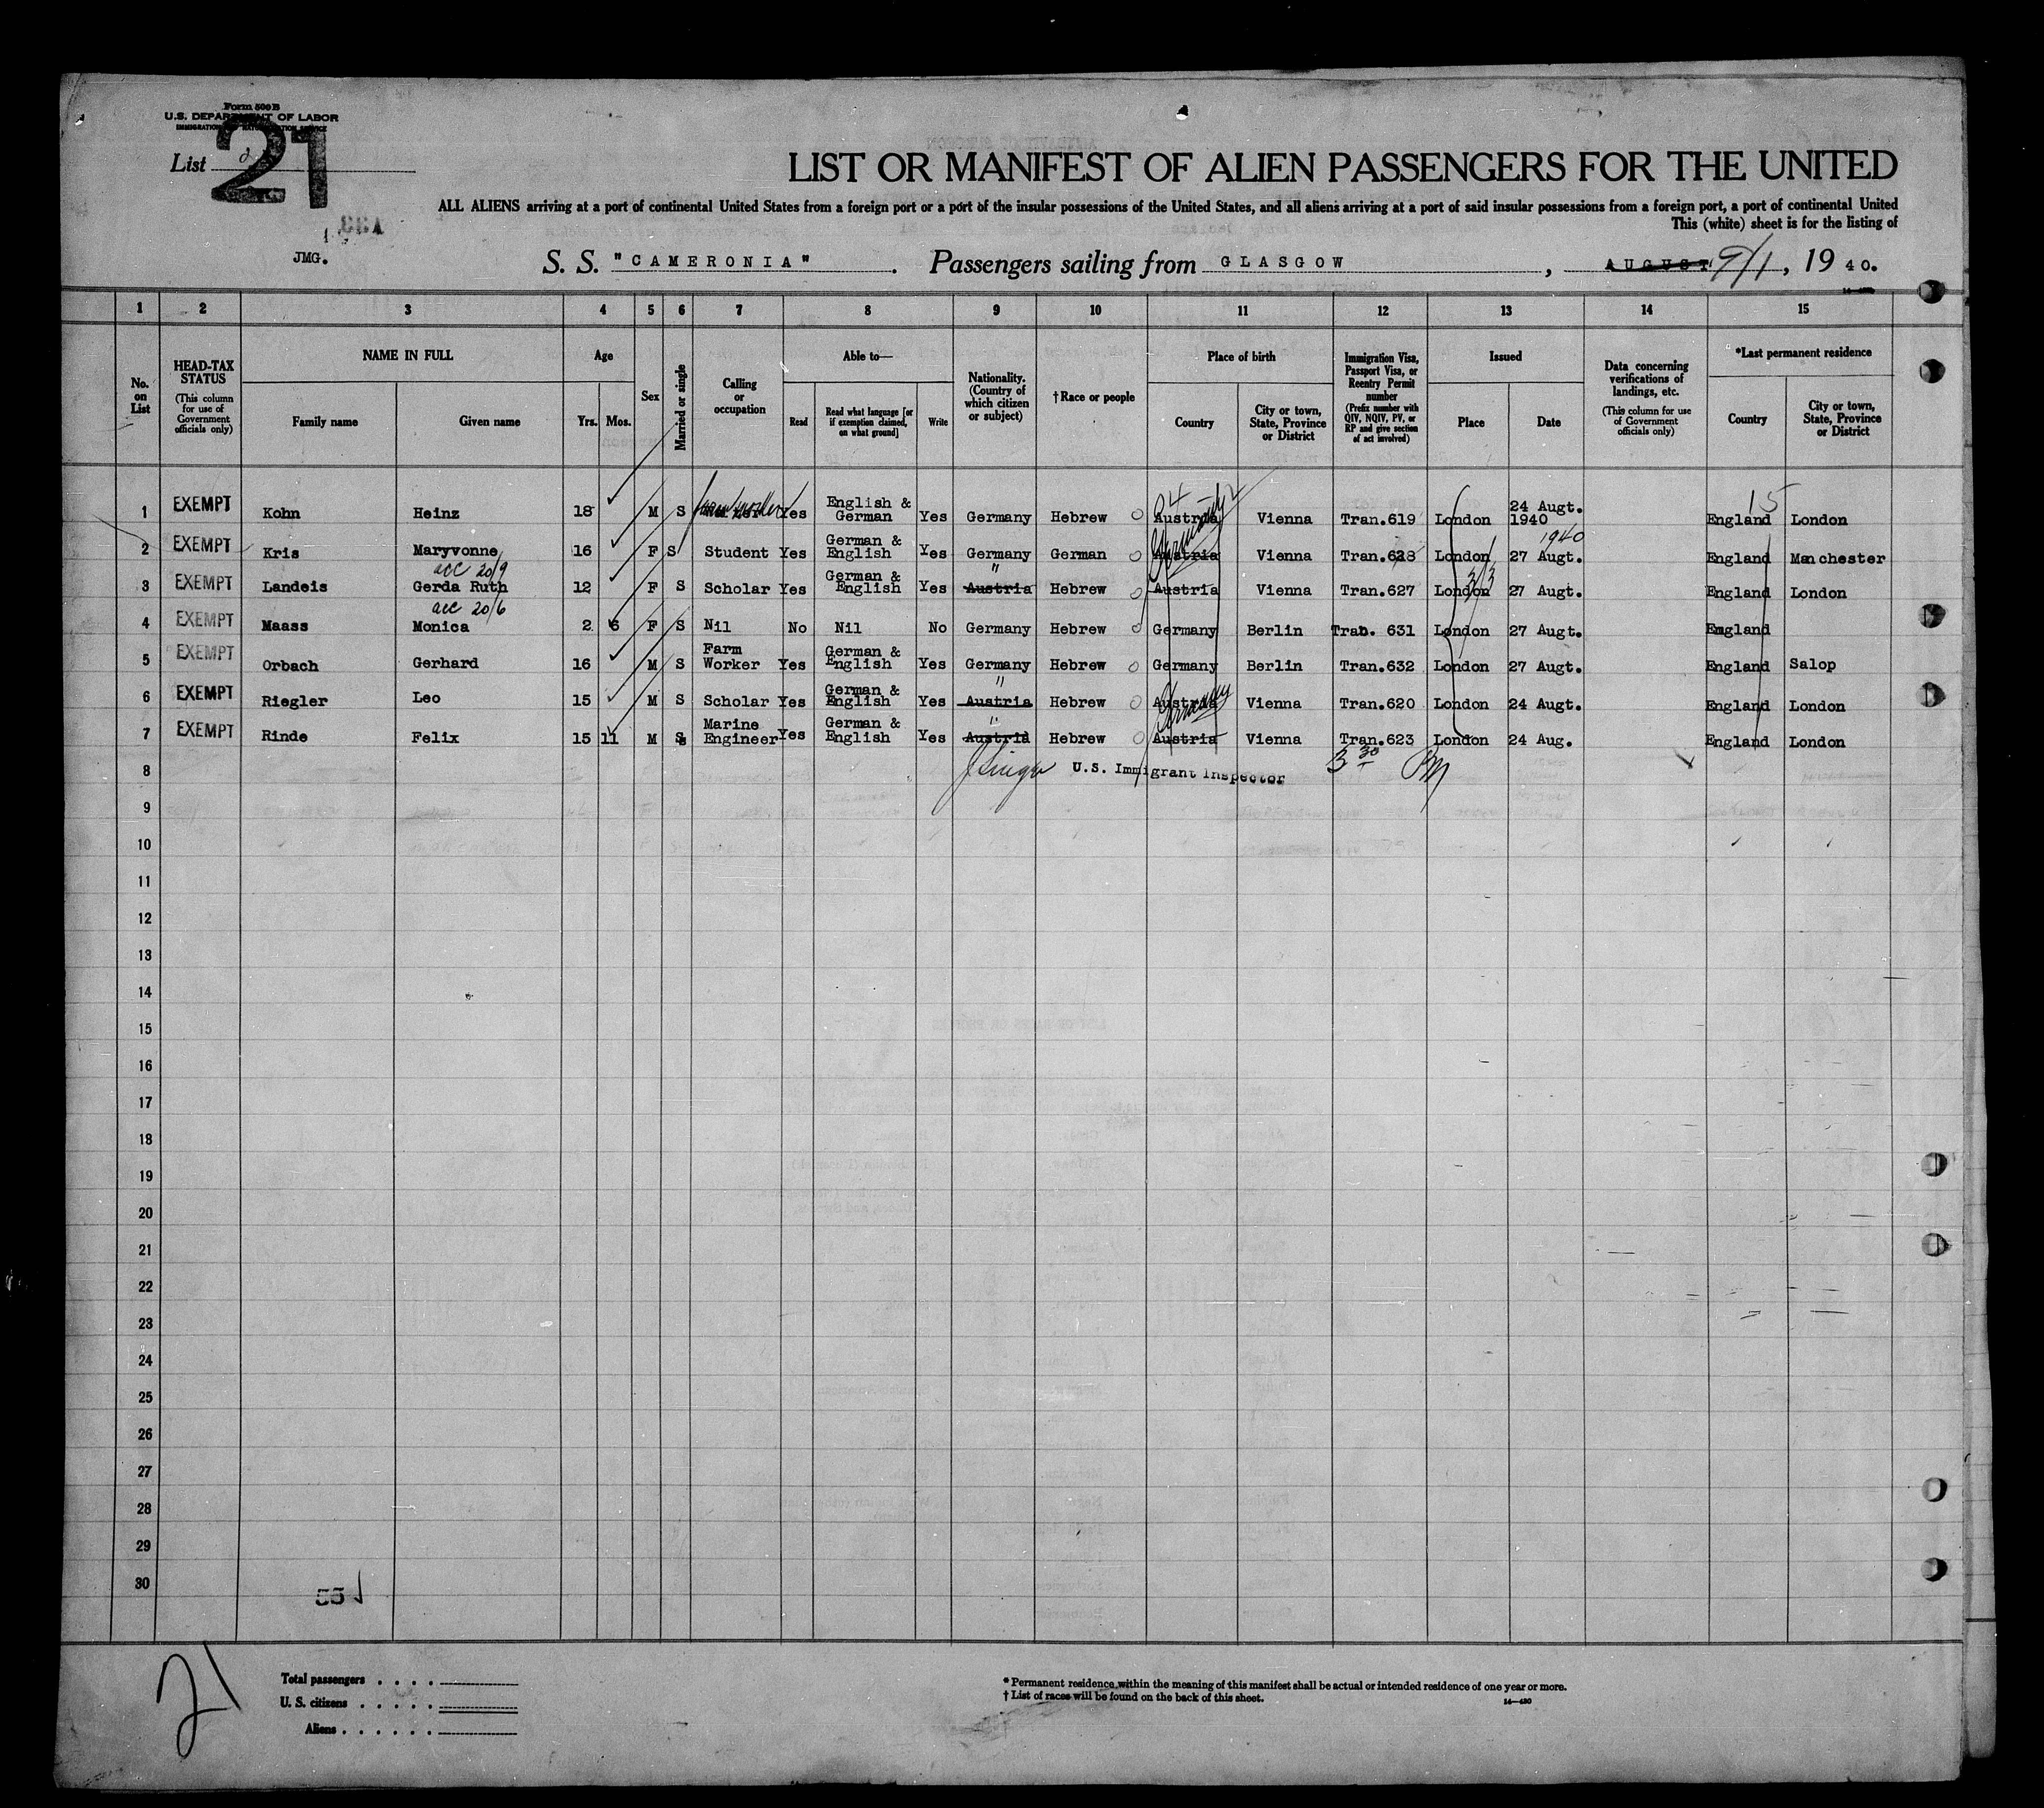 Form 500 B
U.S. DEPARTMENT OF LABOR
IMMIGRATION AND NATURALIZATION SERVICE
List 21
JMG.
LIST OR MANIFEST OF ALIEN PASSENGERS FOR THE UNITED
ALL ALIENS arriving at a port of continental United States from a foreign port or a port of the insular possessions of the United States, and all aliens arriving at a port of said insular possessions from a foreign port, a port of continental United
This (white) sheet is for the listing of
S. S. "CAMERONIA". Passengers sailing from GLASGOW, AUGUST 9/1, 19 40.
1 2 3 4 5 6 7 8 9 10 11 12 13 14 15
No. on List
HEAD-TAX STATUS (This column for use of Government officials only)
NAME IN FULL
Family name Given name
Age
Yrs. Mos.
Sex
Married or single
Calling or occupation
Able to—
Read Read what language [or if exemption claimed, on what ground] Write
Nationality. (Country of which citizen or subject)
†Race or people
Place of birth
Country City or town, State, Province or District
Immigration Visa, Passport Visa, or Reentry Permit number (Prefix number with QIV, NQIV, PV, or RP and give section of act involved)
Issued
Place Date
Data concerning verifications of landings, etc. (This column for use of Government officials only)
*Last permanent residence
Country City or town, State, Province or District
1 EXEMPT Kohn Heinz 18 M S Yes English & German Yes Germany Hebrew Austria Vienna Tran.619 London 24 Augt. 1940 England London
15
2 EXEMPT Kris Maryvonne 16 F S Student Yes German & English Yes Germany German Austria Germany Vienna Tran.628 London 27 Augt. 1940 England Manchester
acc 20/9
3 EXEMPT Landeis Gerda Ruth 12 F S Scholar Yes German & English Yes Austria " Hebrew Austria Vienna Tran.627 London 27 Augt. England London
acc 20/6
4 EXEMPT Maass Monica 2 6 F S Nil No Nil No Germany Hebrew Germany Berlin Tran. 631 London 27 Augt. England
5 EXEMPT Orbach Gerhard 16 M S Farm Worker Yes German & English Yes Germany Hebrew Germany Berlin Tran.632 London 27 Augt. England Salop
6 EXEMPT Riegler Leo 15 M S Scholar Yes German & English Yes Austria " Hebrew Austria Germany Vienna Tran.620 London 24 Augt. England London
7 EXEMPT Rinde Felix 15 11 M S Marine Engineer Yes German & English Yes Austria " Hebrew Austria Vienna Tran.623 London 24 Aug. England London
8 U.S. Immigrant Inspector 3 30 PM
9
10
11
12
13
14
15
16
17
18
19
20
21
22
23
24
25
26
27
28
29
30
21
Total passengers
U. S. citizens
Aliens
* Permanent residence within the meaning of this manifest shall be actual or intended residence of one year or more.
† List of races will be found on the back of this sheet.
14—430